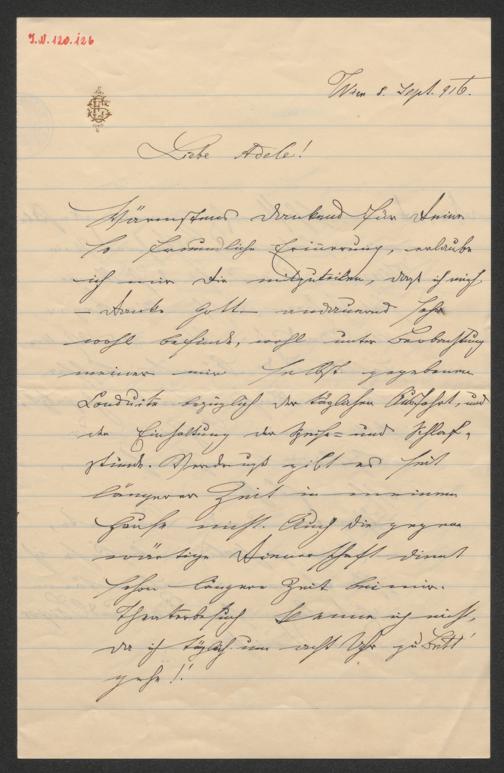 I.N. 120.126
Wien 8. Sept. 916.
Liebe Adele!
Wärmstens dankend für Deine
so freundliche Erinnerung, erlaube
ich mir Dir mitzuteilen, daß ich mich,
– Danke Gott – andauernd sehr
wohl befinde, wohl unter Beobachtung
meiner mir selbst gegebenen
Conduite bezüglich der täglichen Ausfahrt, und
der Einhaltung der Speise- und Schlaf-
stunde. Verdruß gibt es seit
längerer Zeit in meinem
Hause nicht. Auch die gegen-
wärtige Dienerschaft dient
schon längere Zeit bei mir.
Theaterbesuch kenne ich nicht,
da ich täglich um acht Uhr zu Bett
gehe!!